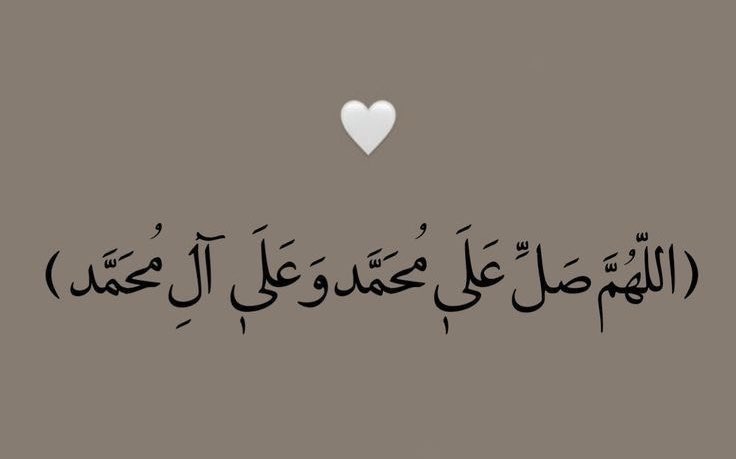 (اللّٰهُمَّ صَلِّ عَلَىٰ مُحَمَّد وَعَلَىٰ آلِ مُحَمَّد)